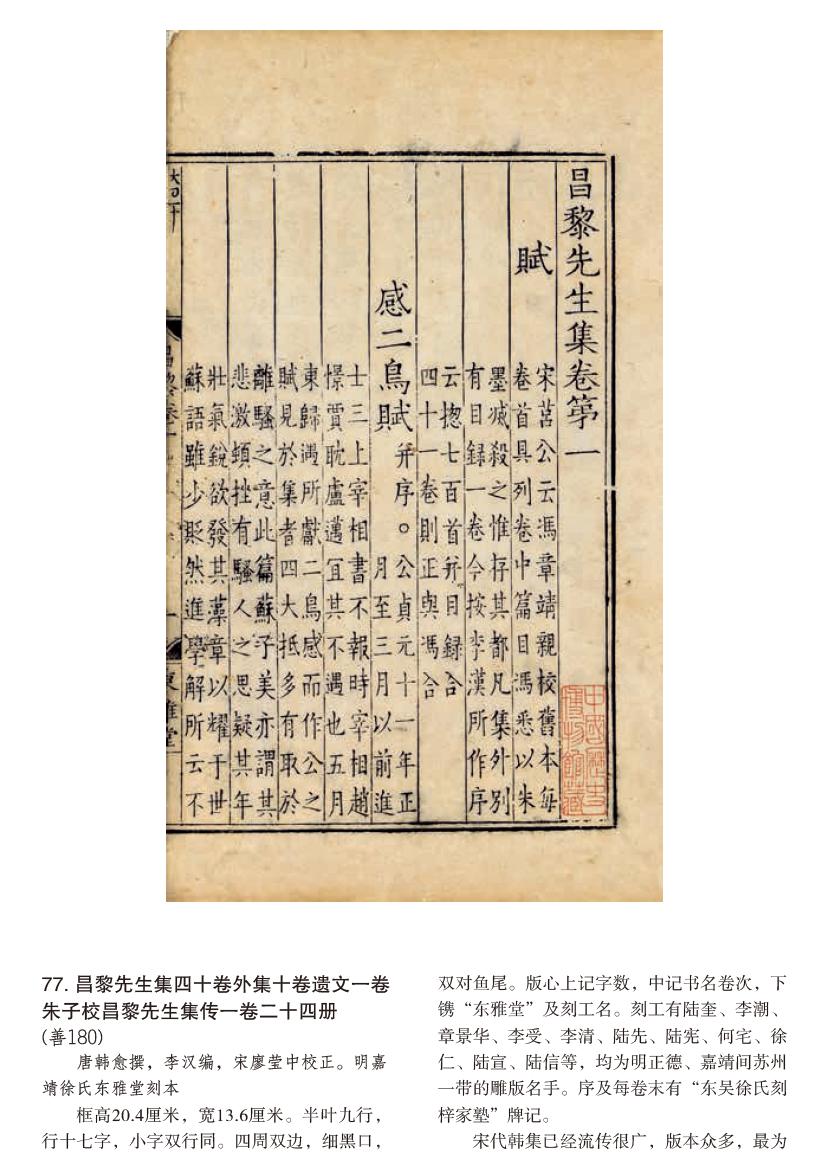 昌黎先生集卷第一
賦
宋莒公云馮章靖親校舊本每
卷首具列卷中篇目馮悉以朱
墨滅殺之惟存其都凡集外別
有目録一卷今按李漢所作序
云揔七百首并目録合
四十一卷則正與馮合
感二鳥賦并序。公貞元十一年正
月至三月以前進
士三上宰相書不報時宰相趙
憬賈耽盧邁冝其不遇也五月
東歸遇所獻二鳥感而作公之
賦見於集者四大抵多有取於
離騷之意此篇蘇子美亦謂其
悲激頓挫有騷人之思疑其年
壯氣銳欲發其藻章以耀于世
蘇語雖少貶然進學解所云不
昌黎卷一
東雅堂
中國歷史
博物館藏
77. 昌黎先生集四十卷外集十卷遗文一卷
朱子校昌黎先生集传一卷二十四册
(善180)
唐韩愈撰，李汉编，宋廖莹中校正。明嘉
靖徐氏东雅堂刻本
框高20.4厘米，宽13.6厘米。半叶九行，
行十七字，小字双行同。四周双边，细黑口，
双对鱼尾。版心上记字数，中记书名卷次，下
镌“东雅堂”及刻工名。刻工有陆奎、李潮、
章景华、李受、李清、陆先、陆宪、何宅、徐
仁、陆宣、陆信等，均为明正德、嘉靖间苏州
一带的雕版名手。序及每卷末有“东吴徐氏刻
梓家塾”牌记。
宋代韩集已经流传很广，版本众多，最为